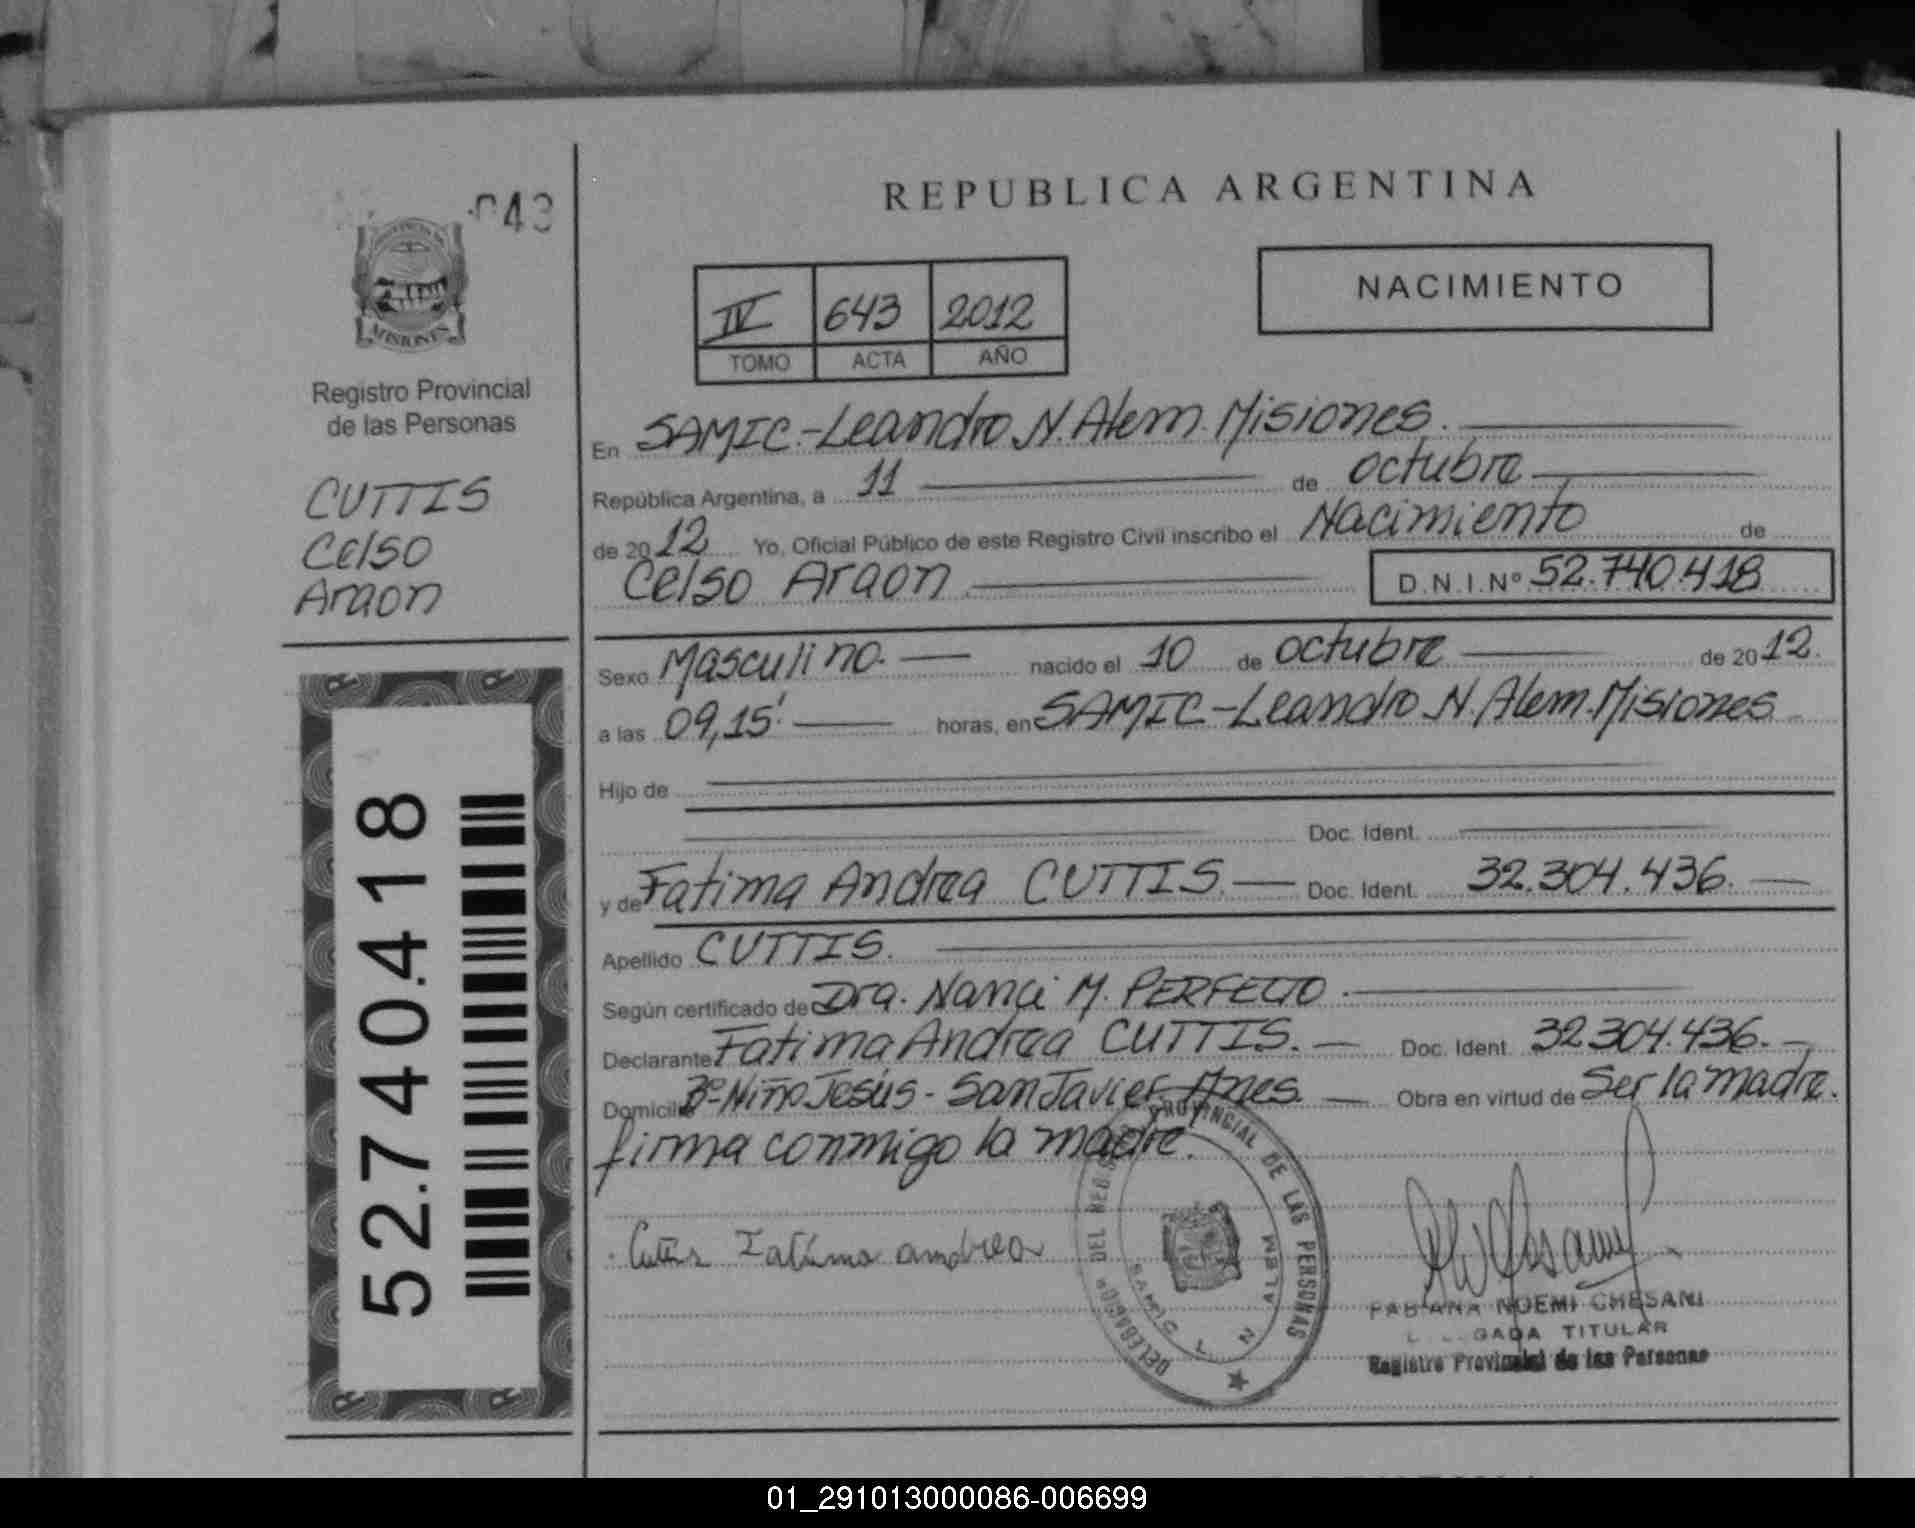 043
REPUBLICA ARGENTINA
MISIONES
Registro Provincial
de las Personas
CUTTIS
Celso
Araon
52.740.418
IV 643 2012
TOMO ACTA AÑO
NACIMIENTO
En SAMIC.-Leandro N. Alem. Misiones.
República Argentina, a 11 de octubre
de 2012 Yo, Oficial Público de este Registro Civil inscribo el Nacimiento de
Celso Araon D.N.I.Nº 52.740.418
Sexo Masculino. nacido el 10 de octubre de 2012.
a las 09,15' horas, en SAMIC-Leandro N. Alem. Misiones
Hijo de
Doc. Ident.
y de Fatima Andrea CUTTIS. Doc. Ident. 32.304.436.
Apellido CUTTIS.
Según certificado de Dra. Nanci M. PERFECTO.
Declarante Fatima Andrea CUTTIS. Doc. Ident. 32.304.436.
Domicilio Bº Niño Jesús - San Javier Mnes. Obra en virtud de Ser la madre.
firma conmigo la madre.
Cuttis Fatima andrea
DELEGACION DEL REGISTRO PROVINCIAL DE LAS PERSONAS
SAMIC L N ALEM
FABIANA NOEMI CHESANI
TITULAR
Registro Provincial de las Personas
01_291013000086-006699